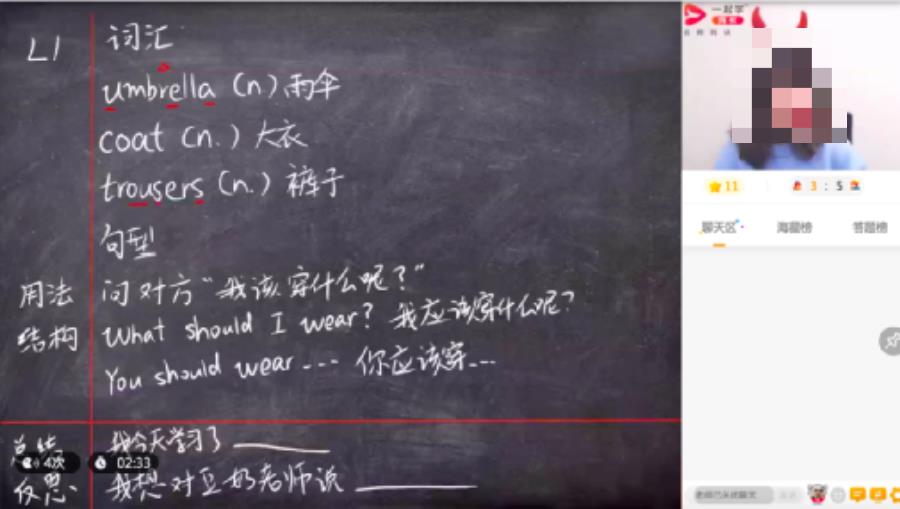 L1
词汇
umbrella (n.) 雨伞
coat (n.) 大衣
trousers (n.) 裤子
句型
用法
结构
问对方“我该穿什么呢?”
What should I wear? 我应该穿什么呢?
You should wear --- 你应该穿---
总结
反思
我今天学习了
我想对豆奶老师说
4次
02:33
一起学
11
3 : 5
聊天区
海星榜
答题榜